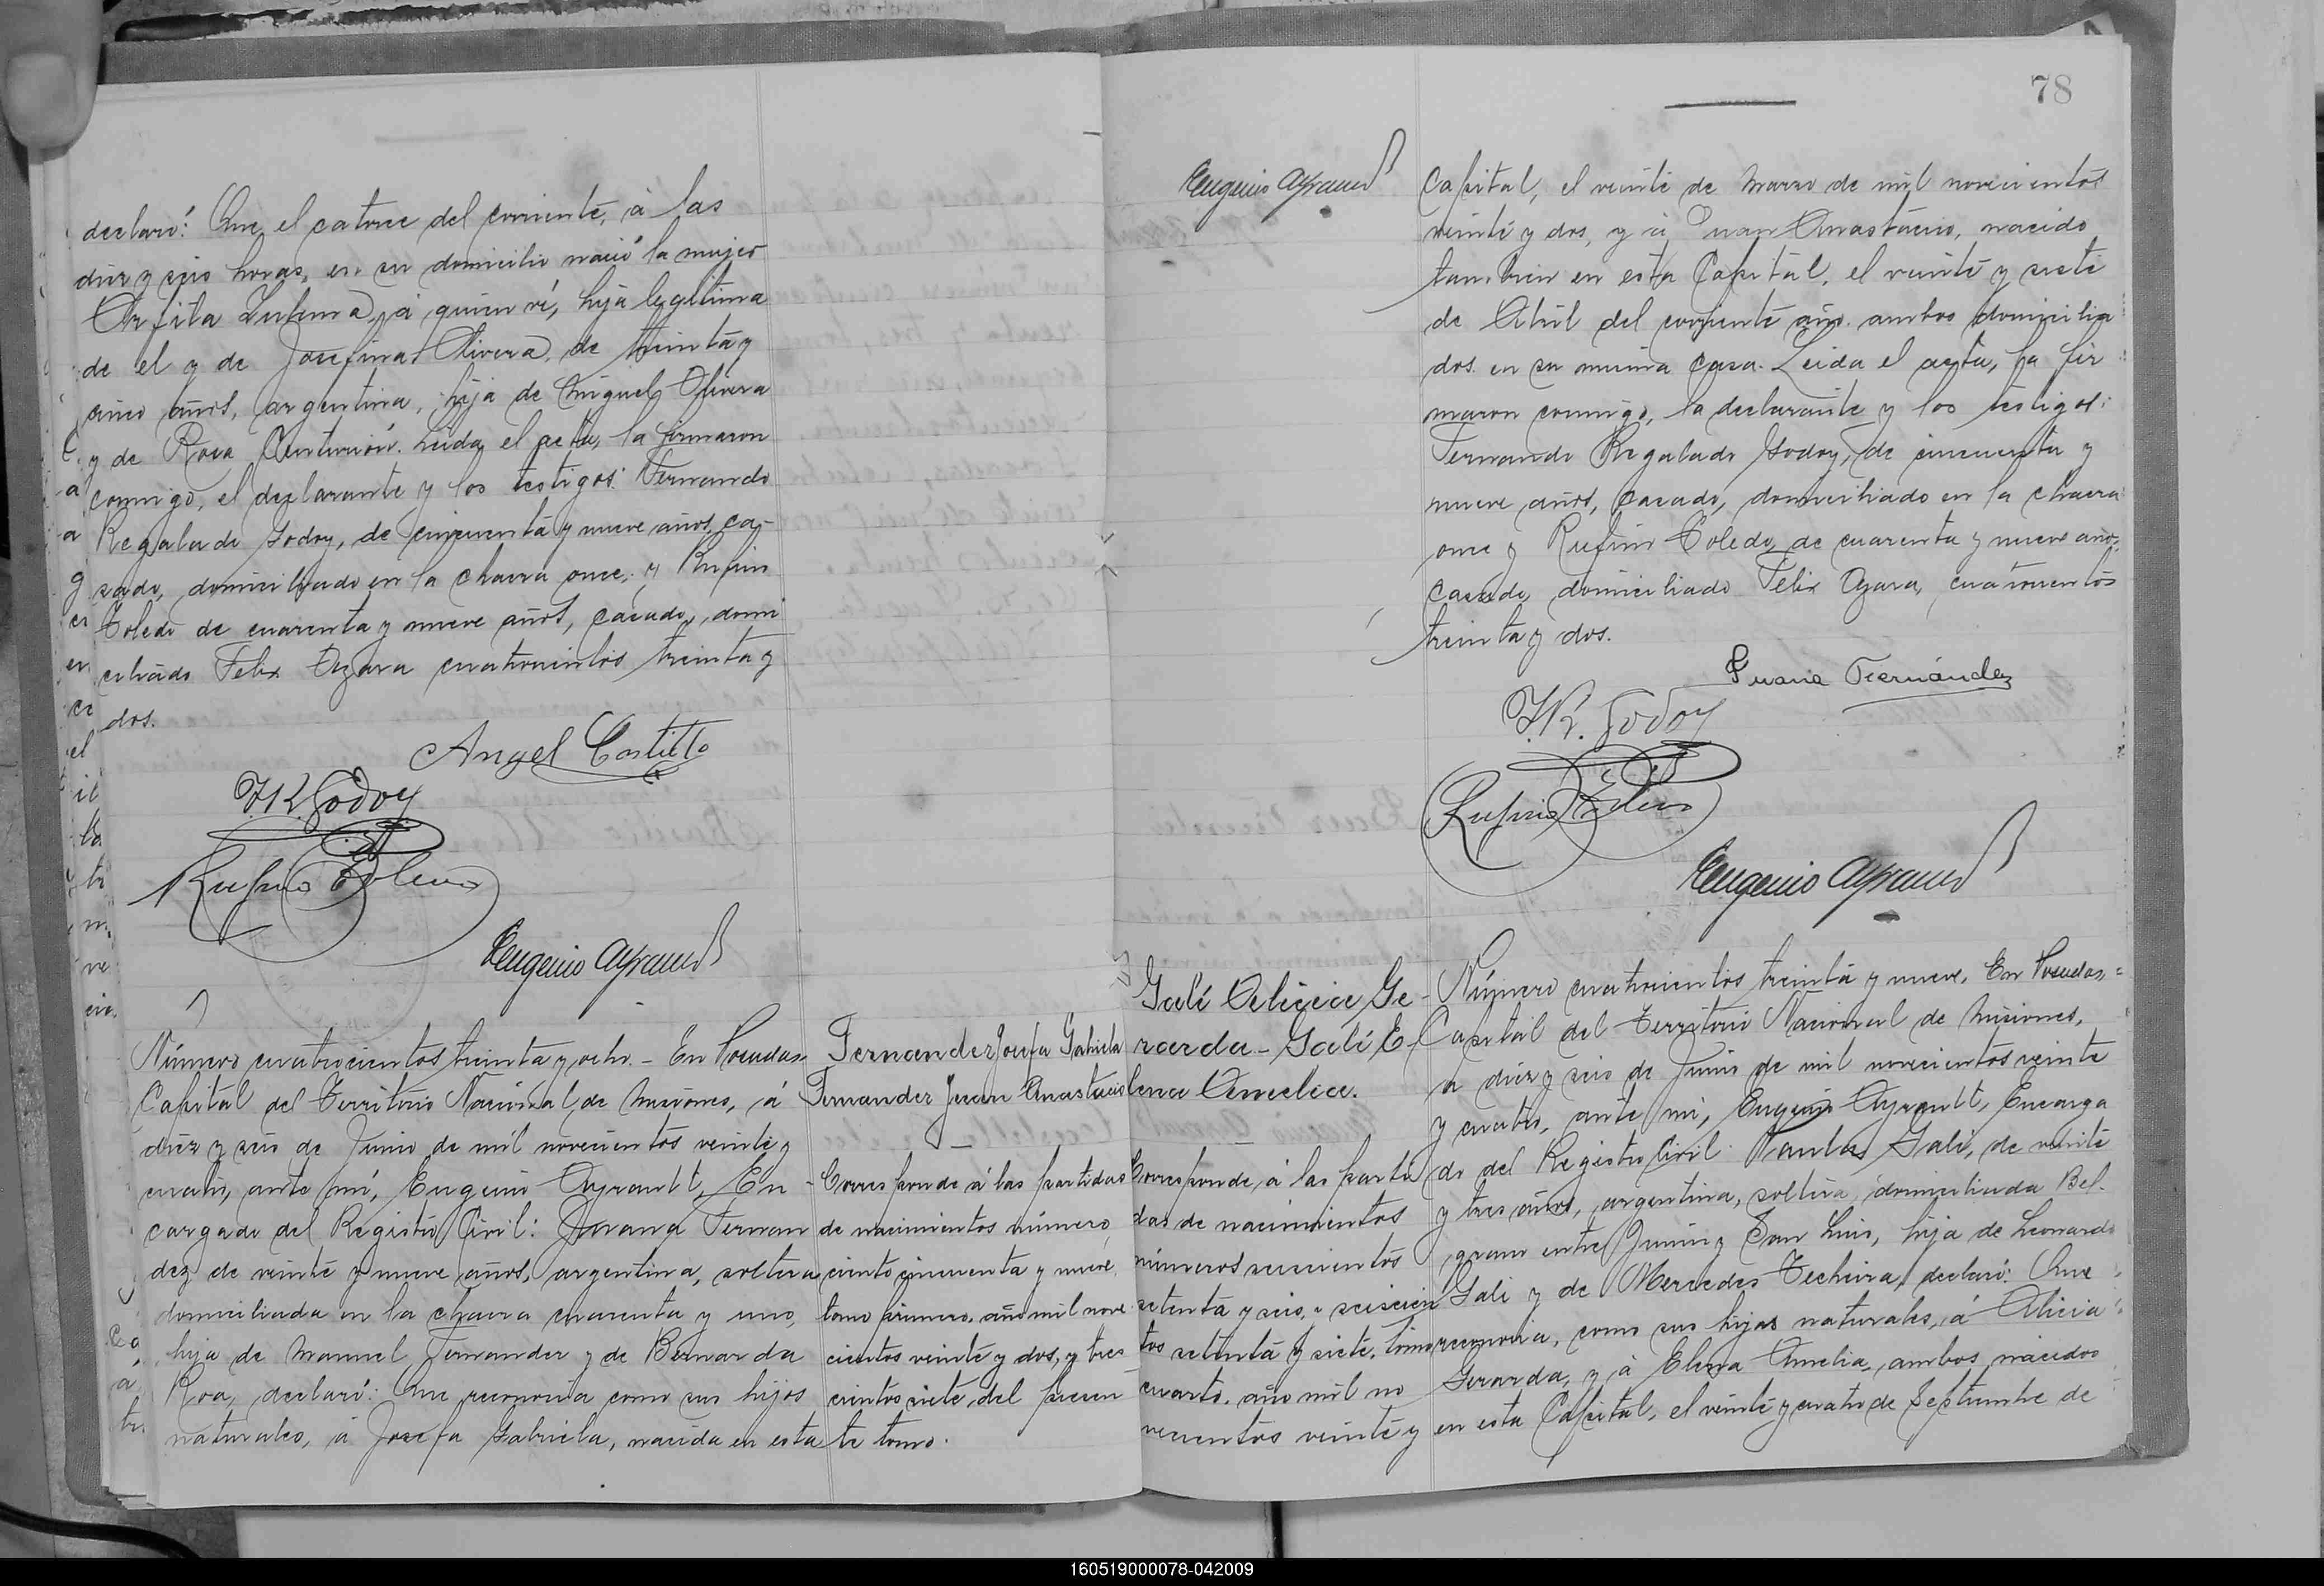 declaró: Que el catorce del corriente, á las
diez y seis horas, en su domicilio nació la mujer
Orfila Zulema, á quien ví, hija legítima
de el y de Josefina Olivera, de treinta y
cinco años, argentina, hija de Miguel Olivera
y de Rosa Centurión. Leida el acta, la firmaron
conmigo, el declarante y los testigos: Fernando
Regalado Godoy, de cincuenta y nueve años, ca-
sado, domiciliado en la chacra once; y Rufino
Toledo de cuarenta y nueve años, casado, domi
ciliado Felix Azara cuatrocientos treinta y
dos.
Angel Castillo
F.R. Godoy
Rufino Toledo
Eugenio Ayrault
Número cuatrocientos treinta y ocho. - En Posadas
Capital del Territorio Nacional de Misiones, á
diez y seis de Junio de mil novecientos veinte y
cuatro, ante mí, Eugenio Ayrault, En
cargado del Registro Civil: Juana Fernan
dez de veinte y nueve años, argentina, soltera
domiciliada en la chacra cuarenta y uno,
hija de Manuel Fernandez y de Bernarda
Roa, declaró: Que reconocía como sus hijos
naturales, á Josefa Gabriela, nacida en esta
Fernandez Josefa Gabriela
Fernandez Juan Anastacio
Corresponde á las partidas
de nacimientos número,
ciento cincuenta y nueve,
tomo primero, año mil nove
cientos veinte y dos, y tres
cientos siete, del presen
te tomo.
78
Eugenio Ayrault
Capital, el veinte de Marzo de mil novecientos
veinte y dos, y á Juan Anastacio, nacido
tambien en esta Capital, el veinte y siete
de Abril del corriente año. ambos domicilia
dos en su misma casa. Leida el acta, la fir
maron conmigo, la declarante y los testigos:
Fernando Regalado Godoy, de cincuenta y
nueve años, casado, domiciliado en la chacra
once y Rufino Toledo, de cuarenta y nueve años,
casado domiciliado Felix Azara, cuatrocientos
treinta y dos.
Juana Fernández
F.R. Godoy
Rufino Toledo
Eugenio Ayrault
Galí Alicia Ge-
rarda - Galí E-
lena Amelia.
Corresponde, á las parti
das de nacimientos
números seiscientos
setenta y seis, y seiscien
tos setenta y siete, tomo
cuarto, año mil no
vecientos veinte y
Número cuatrocientos treinta y nueve. En Posadas,=
Capital del Territorio Nacional de Misiones,
a diez y seis de Junio de mil novecientos veinte
y cuatro, ante mí, Eugenio Ayrault, Encarga
do del Registro Civil: Paula Gali, de veinte
y tres años, argentina, soltera, domiciliada Bel-
grano entre Junin y San Luis, hija de Leonardo
Gali y de Mercedes Techeira, declaró: Que
reconocía, como sus hijas naturales, á Alicia
Gerarda, y á Elena Amelia, ambos nacidos
en esta Capital, el veinte y cuatro de Septiembre de
160519000078-042009